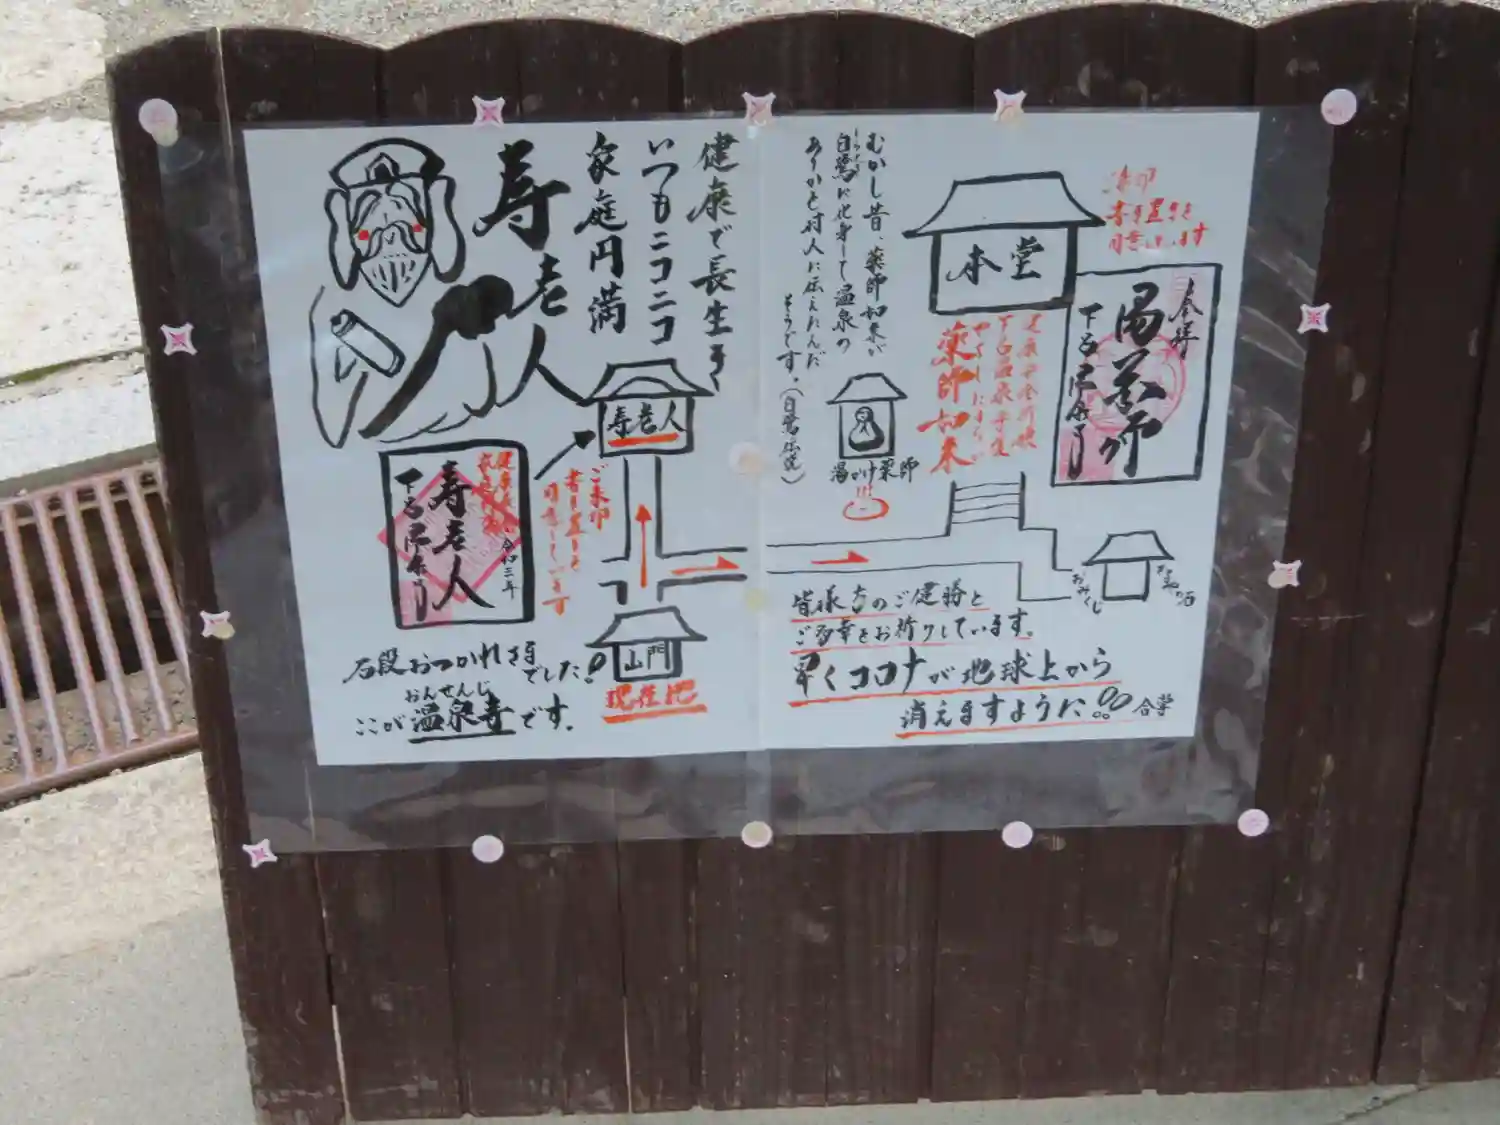 健康で長生き
いつもニコニコ
家庭円満
寿老人
寿老人
ご朱印
書き置きを
用意しています
令和三年
寿老人
下呂温泉寺
山門
現在地
石段おつかれさまでした!
おんせんじ
ここが温泉寺です。
むかし昔、薬師如来が
しらさぎ
白鷺に化身して温泉の
ありかを村人に伝えたんだ
そうです。(白鷺伝説)
本堂
朱印
書き置きを
用意しています
湯薬師
下呂温泉寺
下呂温泉
薬師如来
湯かけ薬師
おみくじ
皆様方のご健勝と
ご多幸をお祈りしています。
早くコロナが地球上から
消えますように!! 合掌